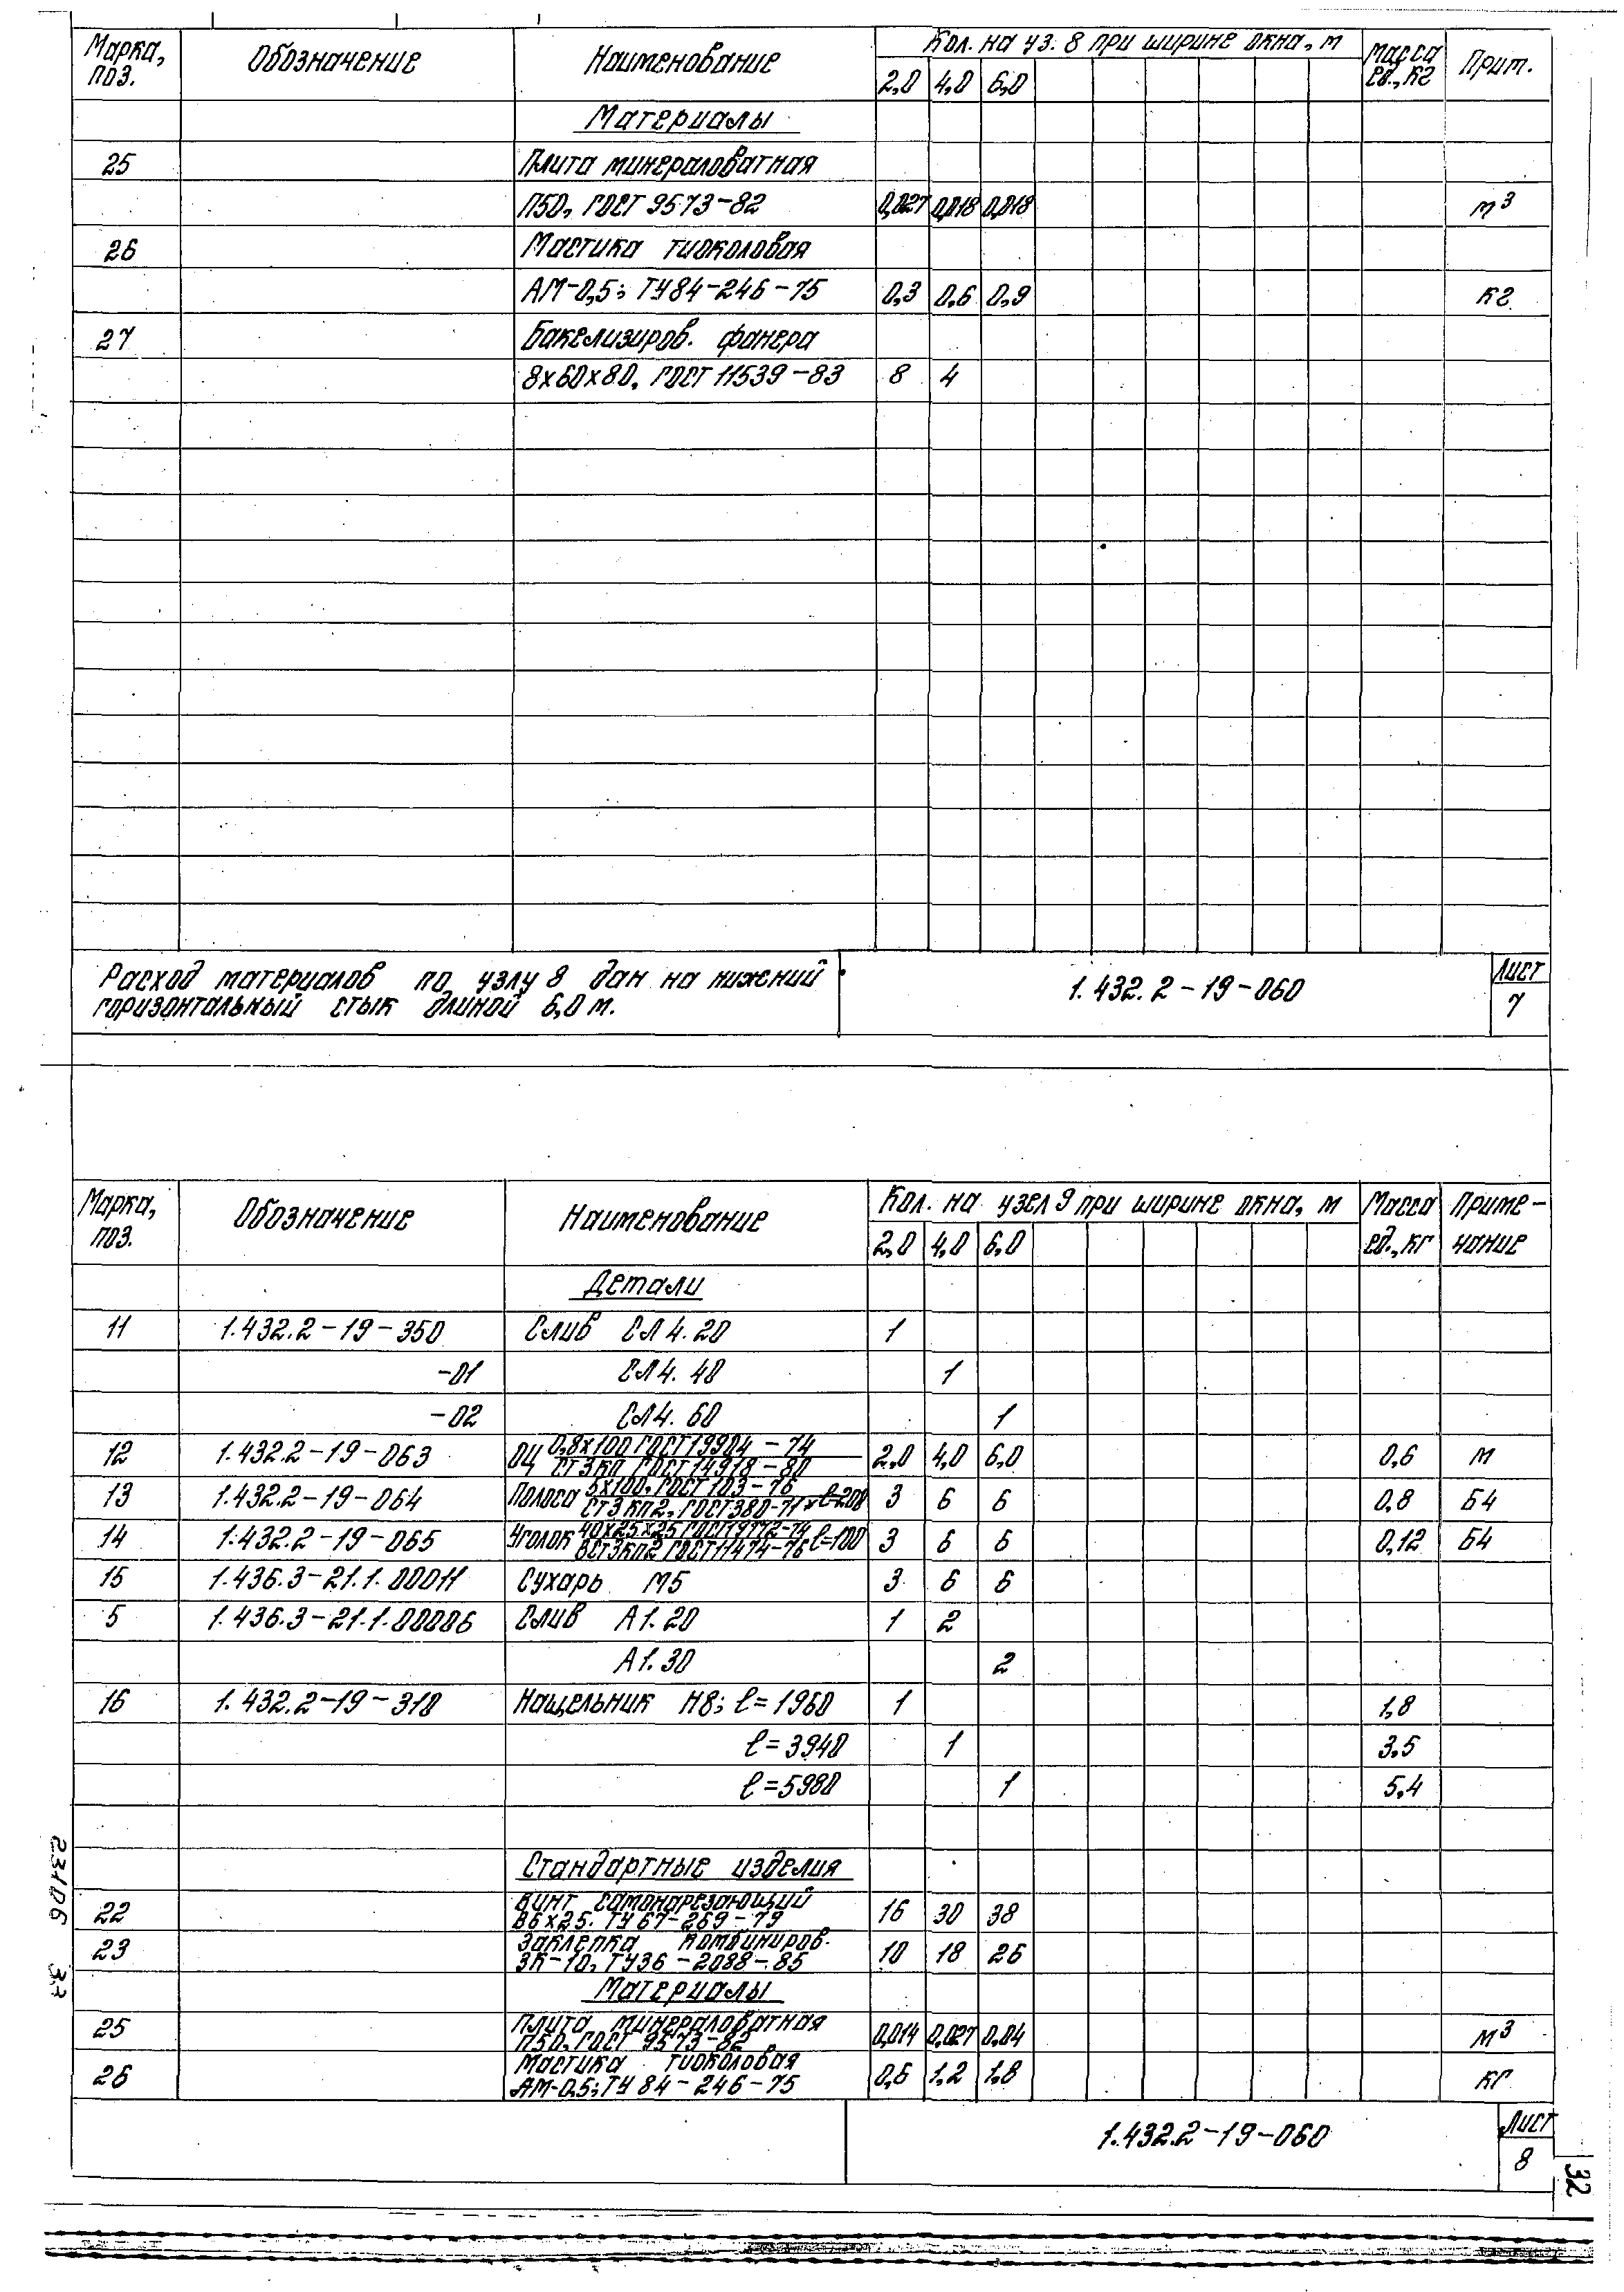 Марка, поз. Обозначение Наименование Кол. на уз. 8 при ширине окна, м Масса ед., кг Прим.
2,0 4,0 6,0
Материалы
25 Плита минераловатная
П50, ГОСТ 9573-82 0,027 0,018 0,018 м3
26 Мастика тиоколовая
АМ-0,5; ТУ84-246-75 0,3 0,6 0,9 кг
27 Бакелизиров. фанера
8х60х80, ГОСТ 11539-83 8 4
Расход материалов по узлу 8 дан на нижний
горизонтальный стык длиной 6,0 м.
1.432.2-19-060
Лист
7
Марка, поз. Обозначение Наименование Кол. на узел 9 при ширине окна, м Масса ед., кг Примечание
2,0 4,0 6,0
Детали
11 1.432.2-19-350 Слив СЛ 4.20 1
-01 СЛ4.40 1
-02 СЛ4.60 1
12 1.432.2-19-063 ОЦ 0,8х100 ГОСТ19904-74 2,0 4,0 6,0 0,6 м
Ст3кп ГОСТ 14918-80
13 1.432.2-19-064 Полоса 5х100, ГОСТ 103-76 3 6 6 0,8 Б4
Ст3кп2, ГОСТ380-71 х ℓ=208
14 1.432.2-19-065 Уголок 40х25х25 ГОСТ19772-74 ℓ=100 3 6 6 0,12 Б4
ВСт3кп2 ГОСТ11474-76
15 1.436.3-21.1.00011 Сухарь М5 3 6 6
5 1.436.3-21.1.00006 Слив А1.20 1 2
А1.30 2
16 1.432.2-19-310 Нащельник Н8; ℓ=1960 1 1,8
ℓ=3940 1 3,5
ℓ=5980 1 5,4
Стандартные изделия
22 Винт самонарезающий
В6х25. ТУ67-269-79 16 30 38
23 Заклепка комбиниров.
ЗК-10, ТУ36-2088-85 10 18 26
Материалы
25 Плита минераловатная
П50, ГОСТ 9573-82 0,014 0,027 0,04 м3
26 Мастика тиоколовая
АМ-0,5; ТУ 84-246-75 0,6 1,2 1,8 кг
1.432.2-19-060
Лист
8
23106 33
32